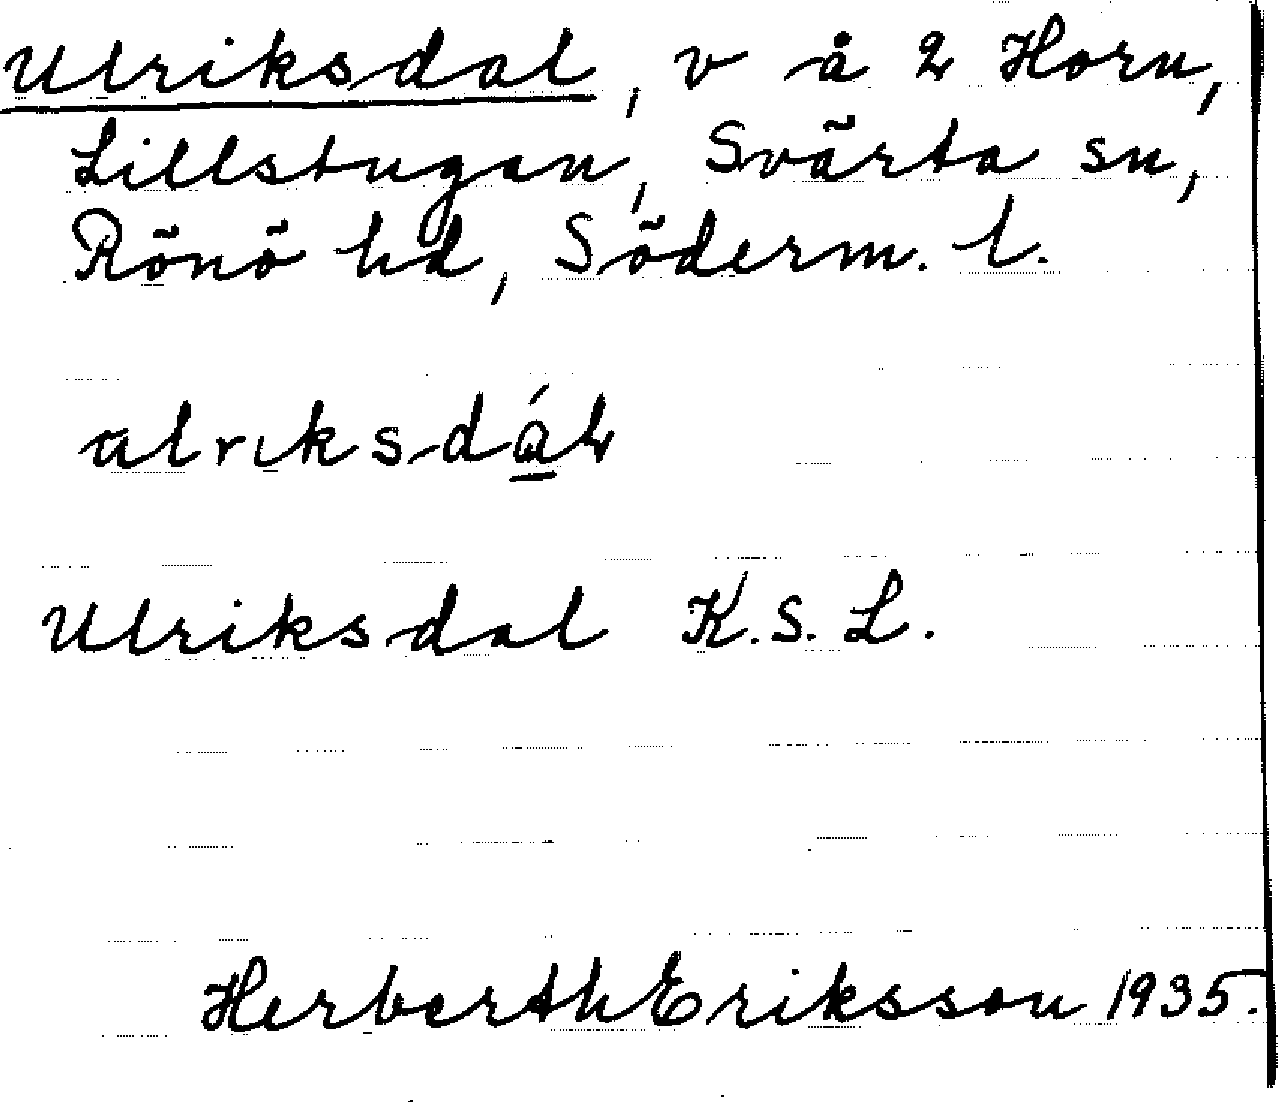 Ulriksdal, v å 2 Horn,
Lillstugan, Svärta sn,
Rönö hd, Söderm. l.
alrıksdáL
Ulriksdal K.S.L.
Herberth Eriksson 1935.